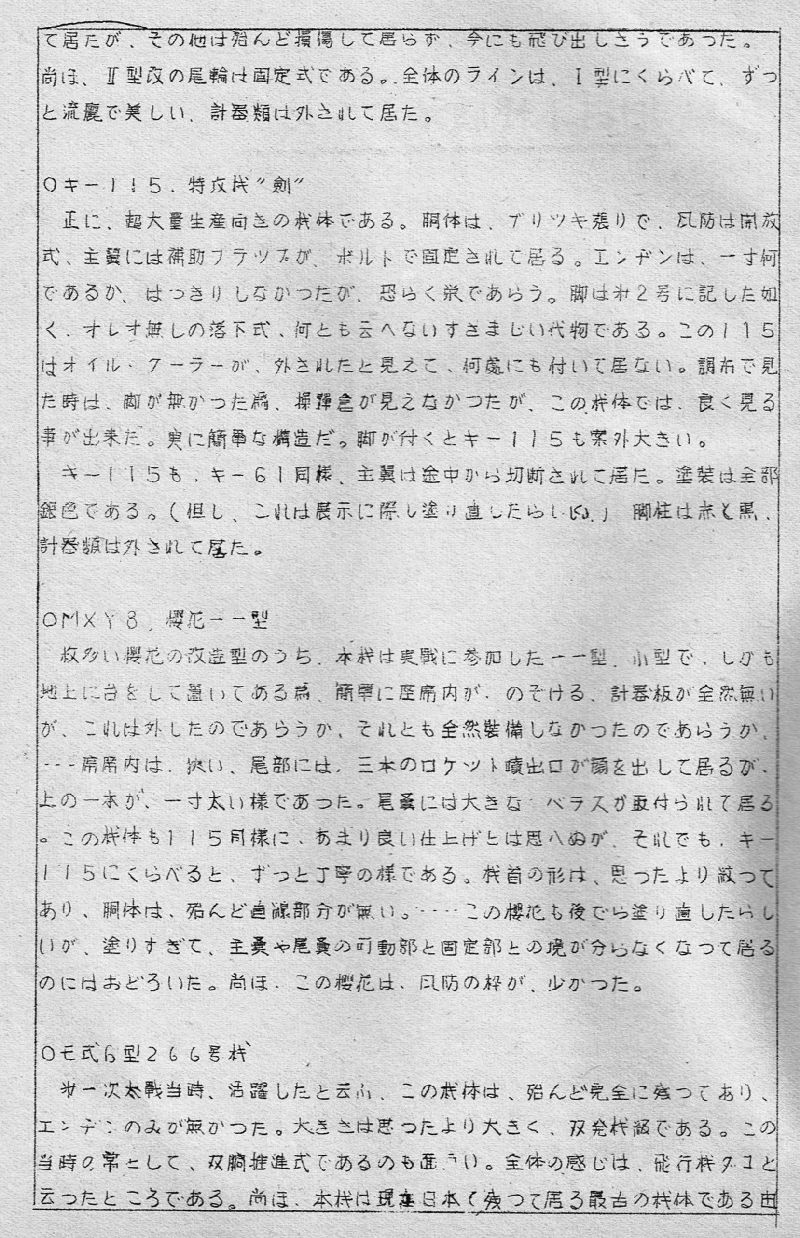 て居たが、その他は殆んど損傷して居らず、今にも飛び出しさうであつた。
尚ほ、Ⅱ型改の尾輪は固定式である。全体のラインは、Ⅰ型にくらべて、ずつ
と流麗で美しい、計器類は外されて居た。
○キー115．特攻機〝剣〟
正に、超大量生産向きの機体である。胴体は、ブリツキ張りで、風防は開放
式、主翼には補助フラツプが、ボルトで固定されて居る。エンヂンは、一寸何
であるか、はつきりしなかつたが、恐らく栄であらう。脚は㐧2号に記した如
く、オレオ無しの落下式、何とも云へないすさまじい代物である。この115
はオイル・クーラーが、外されたと見えて、何處にも付いて居ない。調布で見
た時は、脚が無かつた為、爆弾倉が見えなかつたが、この機体では、良く見る
事が出来た。実に簡単な構造だ。脚が付くとキー115も案外大きい。
キー115も、キー61同様、主翼は途中から切断されて居た。塗装は全部
銀色である。（但し、これは展示に際し塗り直したらしい。）脚柱は赤と黒、
計器類は外されて居た。
○MXY8．櫻花一一型
数多い櫻花の改造型のうち、本機は実戦に参加した一一型、小型で、しかも
地上に台をして置いてある為、簡単に座席内が、のぞける、計器板が全然無い
が、これは外したのであらうか、それとも全然装備しなかつたのであらうか、
‐‐‐席席内は、狭い、尾部には、三本のロケツト噴出口が顔を出して居るが、
上の一本が、一寸太い様であつた。尾翼には大きな バラスが取付られて居る
。この機体も115同様に、あまり良い仕上げとは思へぬが、それでも、キー
115にくらべると、ずつと丁寧の様である。機首の形は、思つたより減つて
あり、胴体は、殆んど直線部分が無い。‐‐‐‐この櫻花も後でら塗り直したらし
いが、塗りすぎて、主翼や尾翼の可動部と固定部との境が分らなくなつて居る
のにはおどろいた。尚ほ、この櫻花は、風防の枠が、少かつた。
○モ式6型266号機
㐧一次大戦当時、活躍したと云ふ、この機体は、殆んど完全に残つてあり、
エンヂンのみが無かつた。大きさは思つたより大きく、双発機級である。この
当時の常として、双胴推進式であるのも面白い。全体の感じは、飛行機タコと
云つたところである。尚ほ、本機は現在日本で残つて居る最古の機体である由